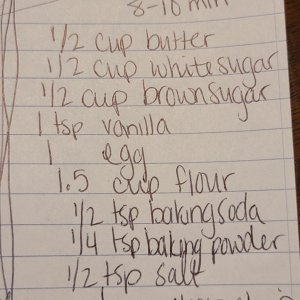 8-10 min
1/2 cup butter
1/2 cup white sugar
1/2 cup brown sugar
1 tsp vanilla
1 egg
1.5 cup flour
1/2 tsp baking soda
1/4 tsp baking powder
1/2 tsp salt